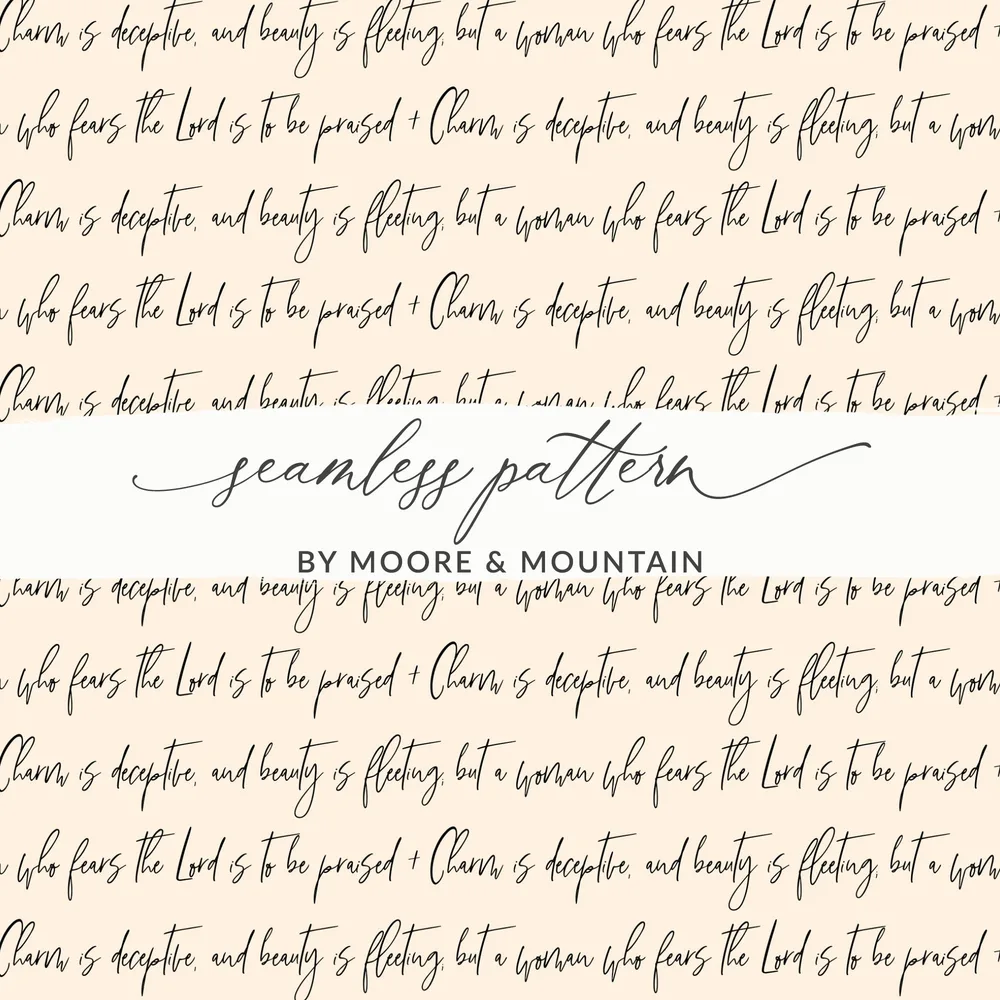 Charm is deceptive, and beauty is fleeting, but a woman who fears the Lord is to be praised +
who fears the Lord is to be praised + Charm is deceptive, and beauty is fleeting, but a wom
Charm is deceptive, and beauty is fleeting, but a woman who fears the Lord is to be praised +
who fears the Lord is to be praised + Charm is deceptive, and beauty is fleeting, but a wom
Charm is deceptive, and beauty is fleeting, but a woman who fears the Lord is to be praised +
seamless pattern
BY MOORE & MOUNTAIN
Charm is deceptive, and beauty is fleeting, but a woman who fears the Lord is to be praised +
who fears the Lord is to be praised + Charm is deceptive, and beauty is fleeting, but a wom
Charm is deceptive, and beauty is fleeting, but a woman who fears the Lord is to be praised +
who fears the Lord is to be praised + Charm is deceptive, and beauty is fleeting, but a wom
Charm is deceptive, and beauty is fleeting, but a woman who fears the Lord is to be praised +